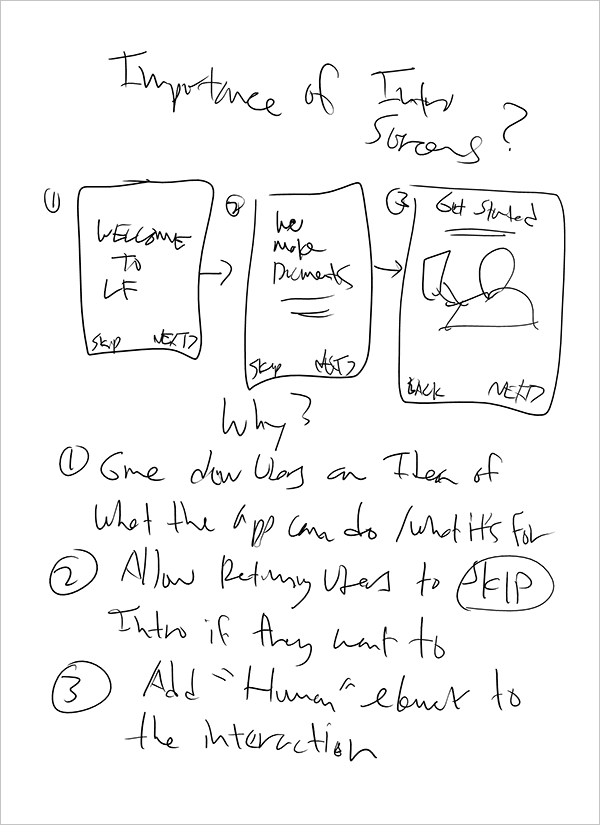 Importance of Intro
Screens?
① ② ③
WELCOME
TO
LF
SKIP NEXT>
We
make
Documents
Skip NEXT>
Get Started
BACK NEXT>
Why?
① Give new Users an Idea of
what the app can do /what it's for
② Allow Returning Users to SKIP
Intro if they want to
③ Add "Human" element to
the interaction